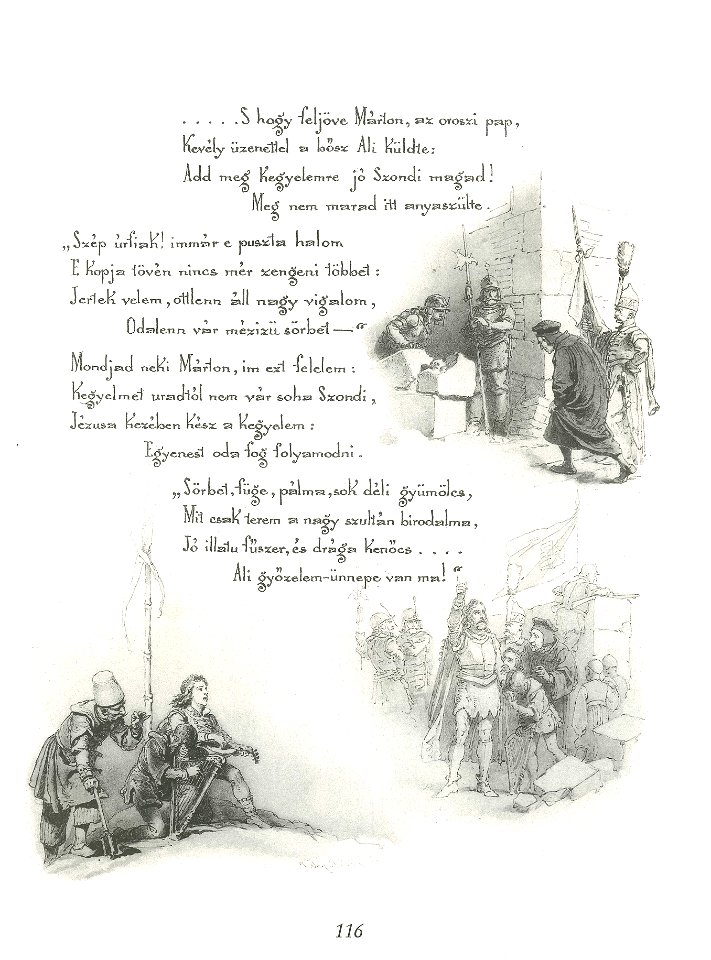 . . . . . S hogy feljöve Márton, az oroszi pap,
Kevély üzenettel a bősz Ali küldte:
Add meg kegyelemre jó Szondi magad!
Meg nem marad itt anyaszülte.
„Szép úrfiak! immár e puszta halom
E kopja tövén nincs mér zengeni többet:
Jertek velem, ottlenn áll nagy vigalom,
Odalenn vár mézizü sörbet — “
Mondjad neki Márton, im ezt felelem:
Kegyelmet uradtól nem vár soha Szondi,
Jézusa kezében kész a kegyelem:
Egyenest oda fog folyamodni.
„Sörbet, füge, pálma, sok déli gyümölcs,
Mit csak terem a nagy szultán birodalma,
Jó illatu fűszer, és drága kenőcs . . . .
Ali győzelem-ünnepe van ma! “
116